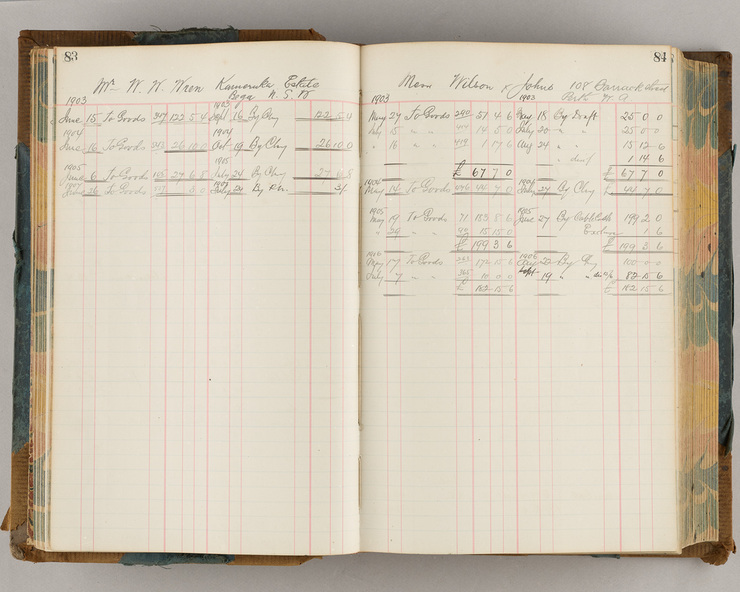 83
Mr W. W. Wren Kameruka Estate
Bega N. S. W
1903 1903
June 15 To Goods 122 5 4 Sept 16 By Chq 122 5 4
1904 1904
June 16 To Goods 26 10 0 Oct 19 By Chq 26 10 0
1905 1905
June 6 To Goods 27 6 8 July 24 By Chq 27 6 8
26 To Goods July 24 By
84
Messrs Wilson & Johns 108 Barrack Street
Perth W. A.
1903 1903
May 27 To Goods 290 51 4 6 Aug 18 By Draft 25 0 0
July 15 " " 14 5 0 20 " " 25 0 0
" 16 " " 1 17 6 Aug 24 " 15 12 6
" 1 14 6
£ 67 7 0 £ 67 7 0
1904 1904
May 14 To Goods 44 7 0 July 27 By Chq 44 7 0
1905 1905
May 19 To Goods 71 183 8 6 June 27 By 199 2 0
" 29 " " 15 15 0 Exchange 1 6
£ 199 3 6 £ 199 3 6
1906 1906
May 17 To Goods 172 15 6 Aug 22 By Chq 100 0 0
July 7 " " 10 0 0 Sept 19 " " 82 15 6
£ 182 15 6 £ 182 15 6